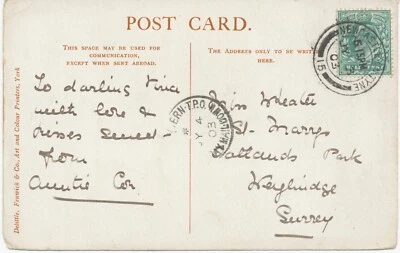 POST CARD.
THIS SPACE MAY BE USED FOR
COMMUNICATION,
EXCEPT WHEN SENT ABROAD.
THE ADDRESS ONLY TO BE WRITTEN
HERE.
To darling
with love &
kisses
from
Auntie
Miss
St. Marys
Oatlands Park
Weybridge
Surrey
JY 4
03
Delittle, Fenwick & Co., Art and Colour Printers, York